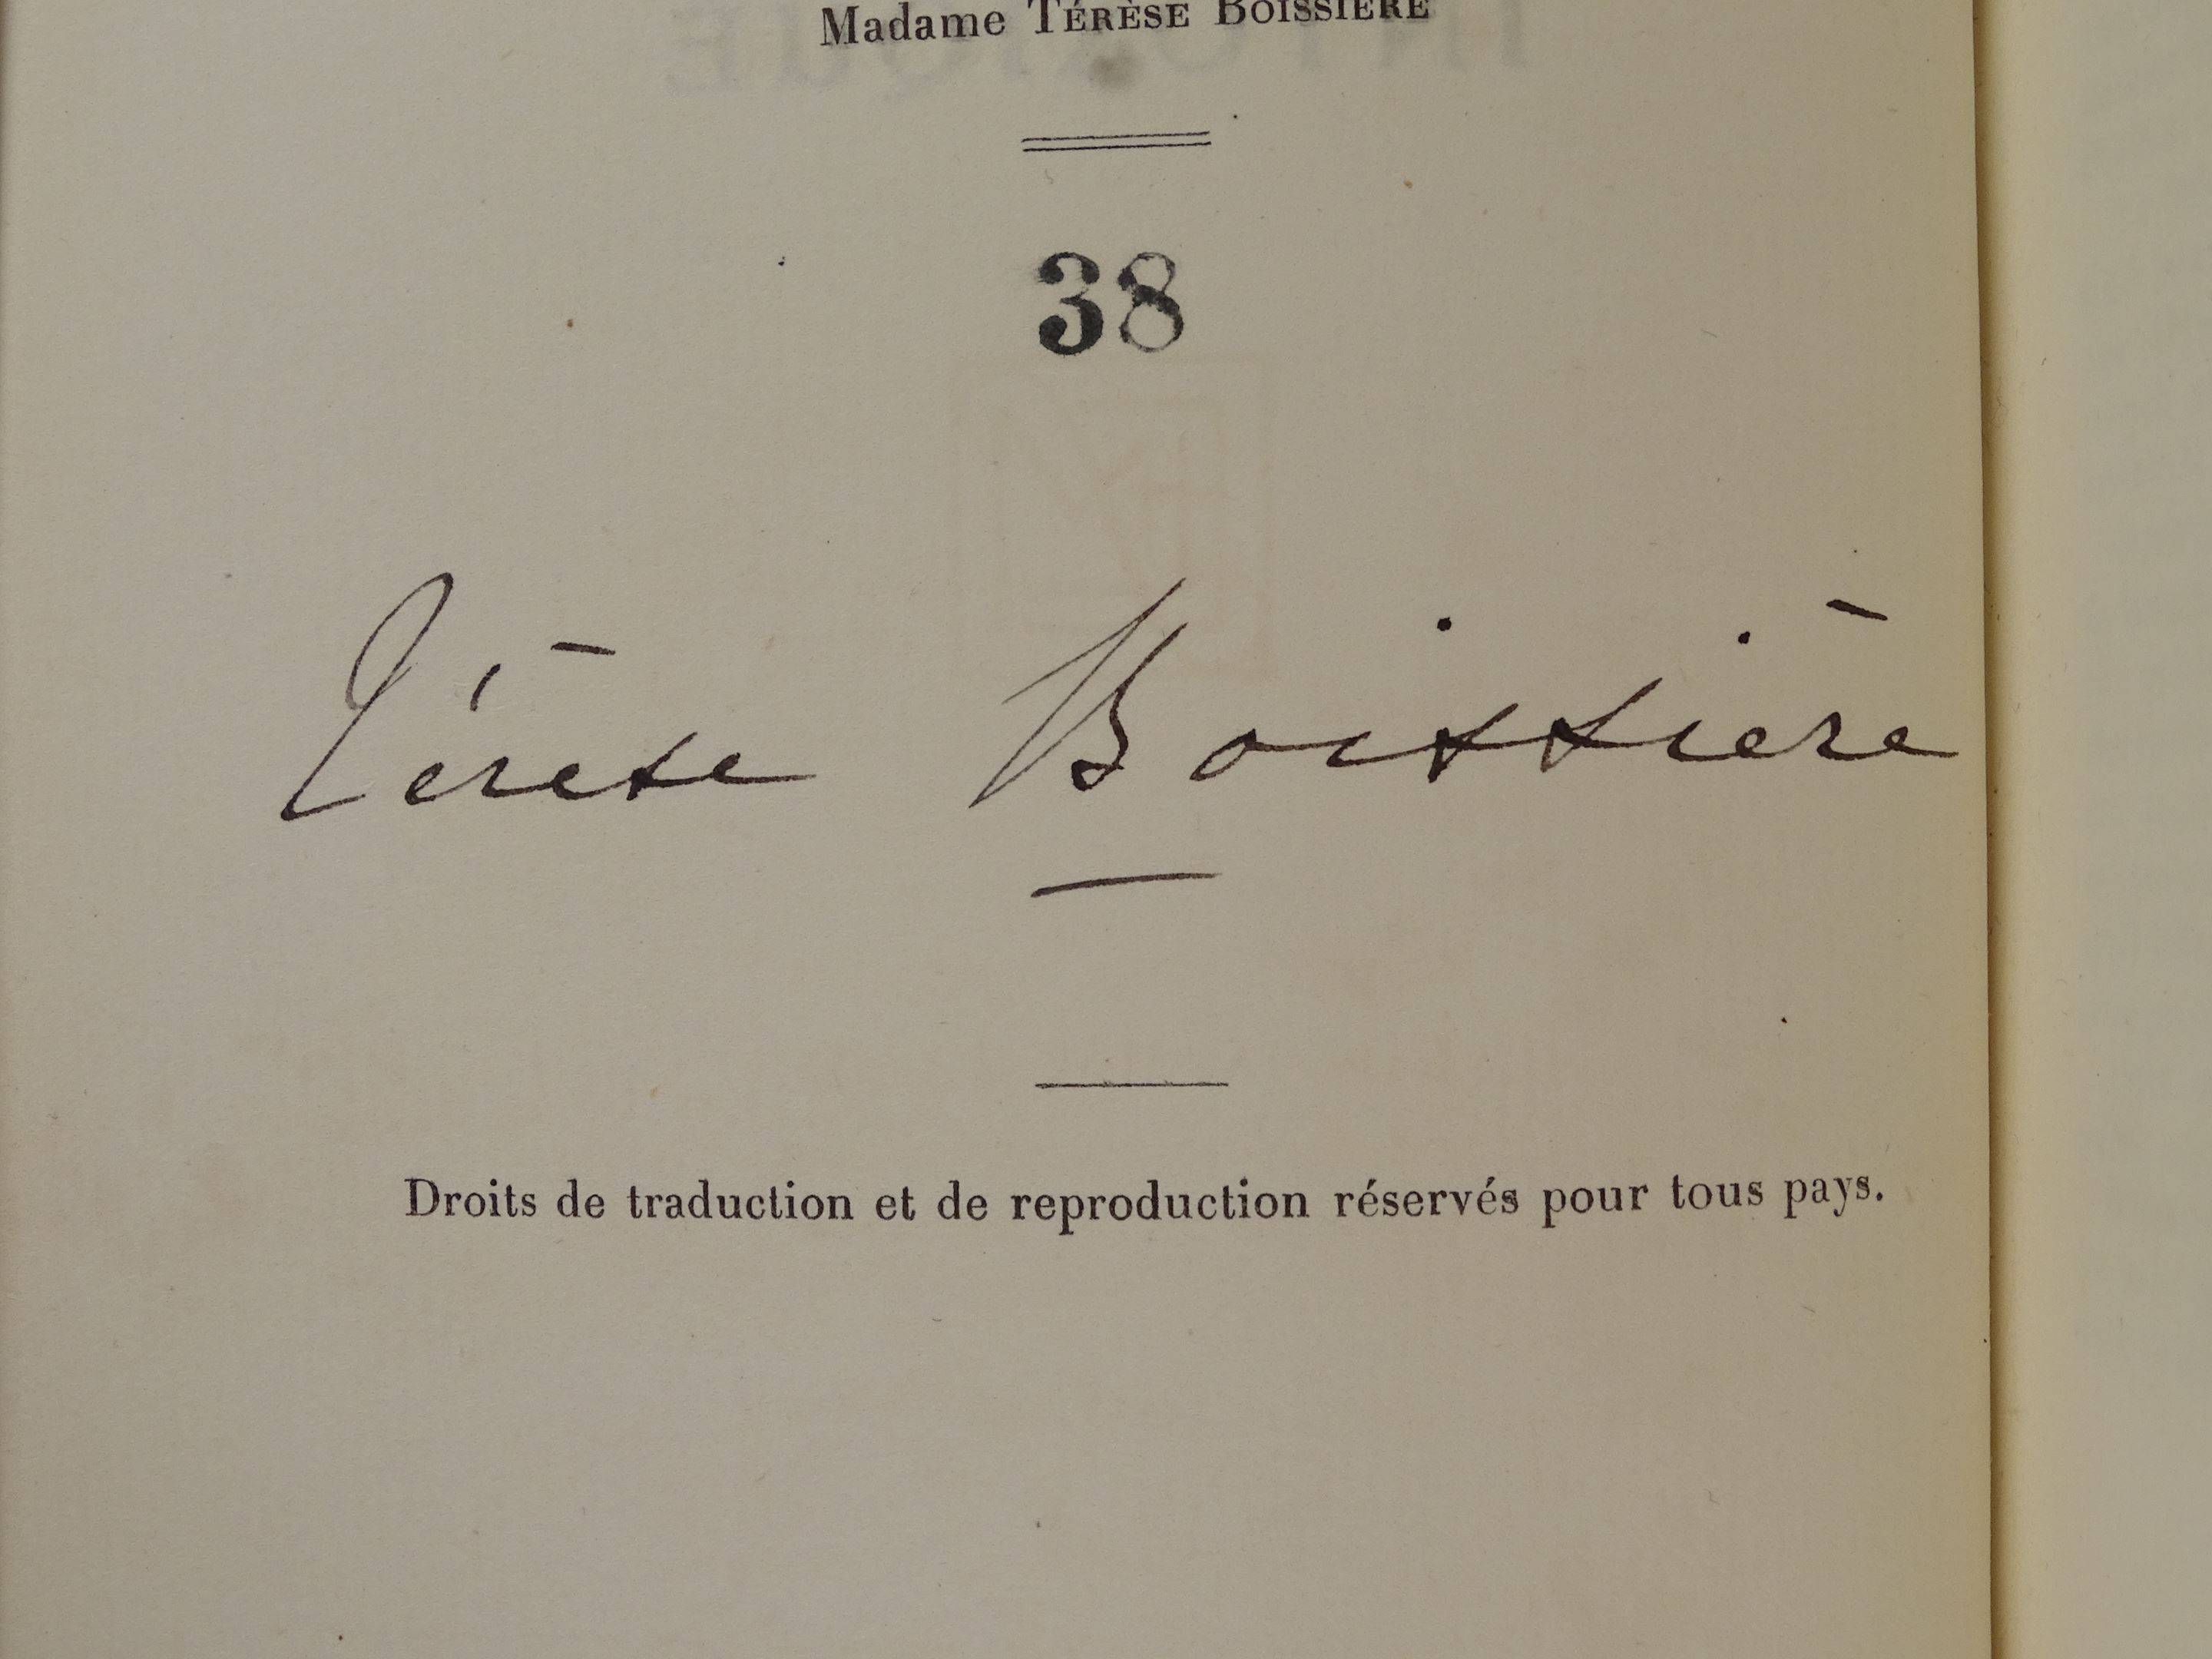 Madame TÉRÈSE BOISSIÈRE
38
Térèse Boissière
Droits de traduction et de reproduction réservés pour tous pays.